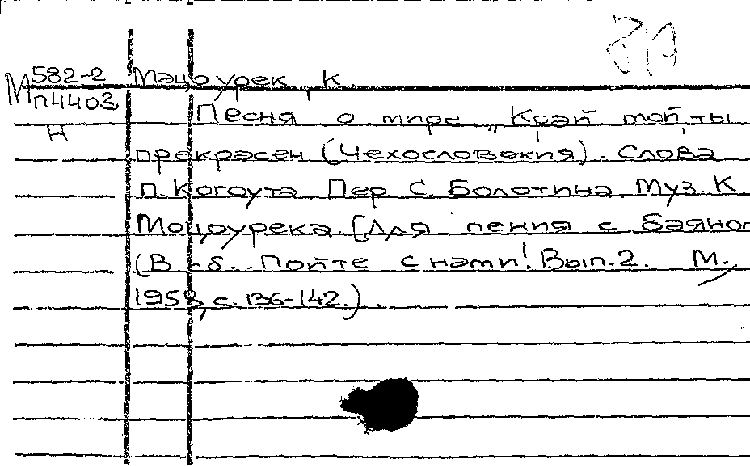 М 582-2 Мацоурек, К.
п4403 Песня о мире „Край мой, ты
Н
прекрасен (Чехословакия). Слова
П. Когоута. Пер. С. Болотина. Муз. К.
Мацоурека. [Для пения с баяном
(В сб. Пойте с нами! Вып. 2. М.,
1958, с. 136-142.).